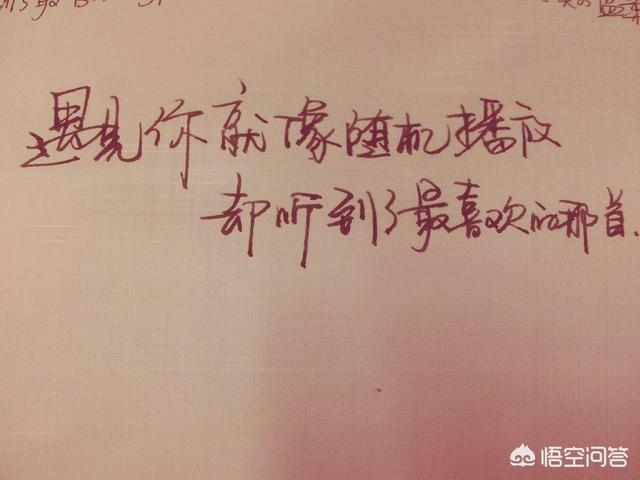 遇见你就像随机播放
却听到了最喜欢的那首.
悟空问答